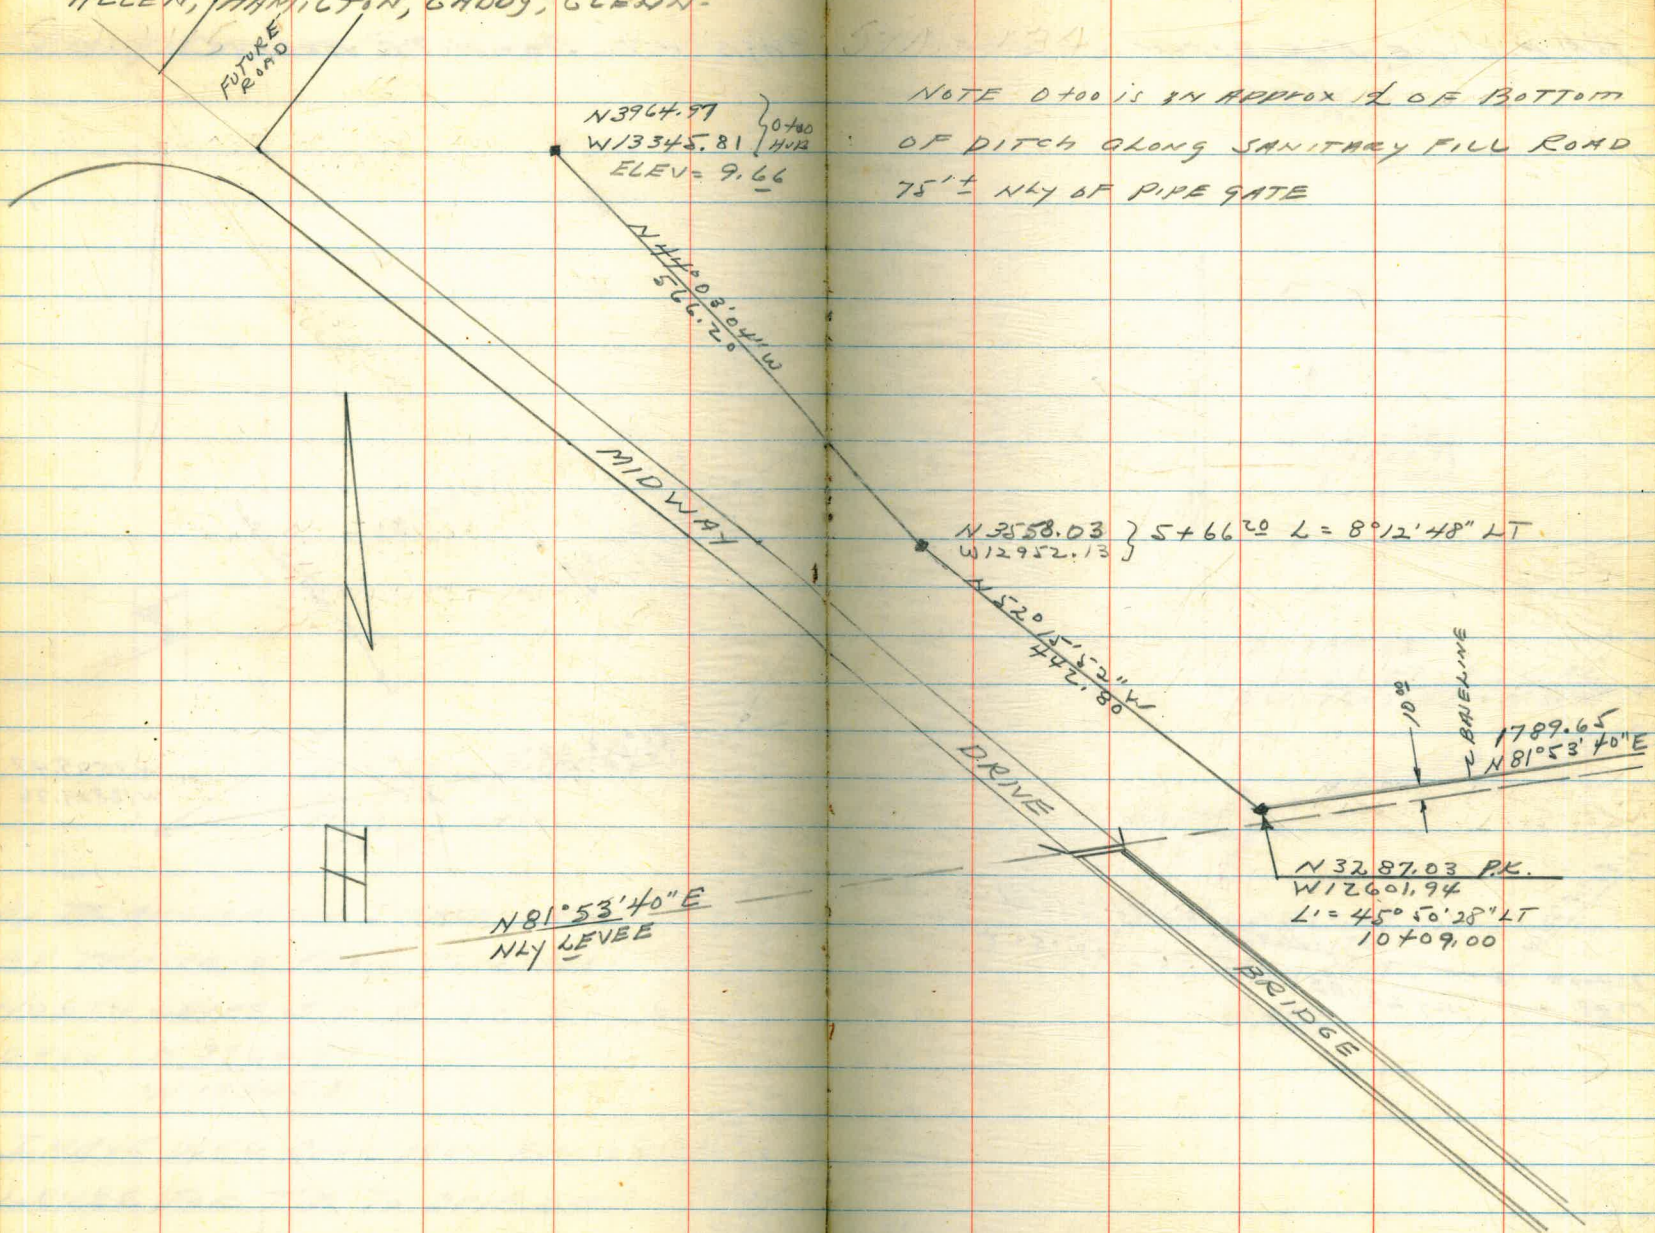 ALLEN, HAMILTON, GADDY, GLENN-
FUTURE
ROAD
N3964.97
W13345.81
ELEV= 9.66
0+00
HUB
NOTE 0+00 is IN APPROX ℄ OF BOTTOM
OF DITCH ALONG SANITARY FILL ROAD
75'± NLY OF PIPE GATE
N44°03'04"W
566.20
MIDWAY
DRIVE
N3558.03
W12952.13
5+66 20 L = 8°12'48" LT
N52°15'52"W
442.80
10 00
BASELINE
1789.65
N81°53'40"E
N3287.03 P.K.
W12601.94
L = 45°50'28" LT
10+09.00
N81°53'40"E
NLY LEVEE
BRIDGE